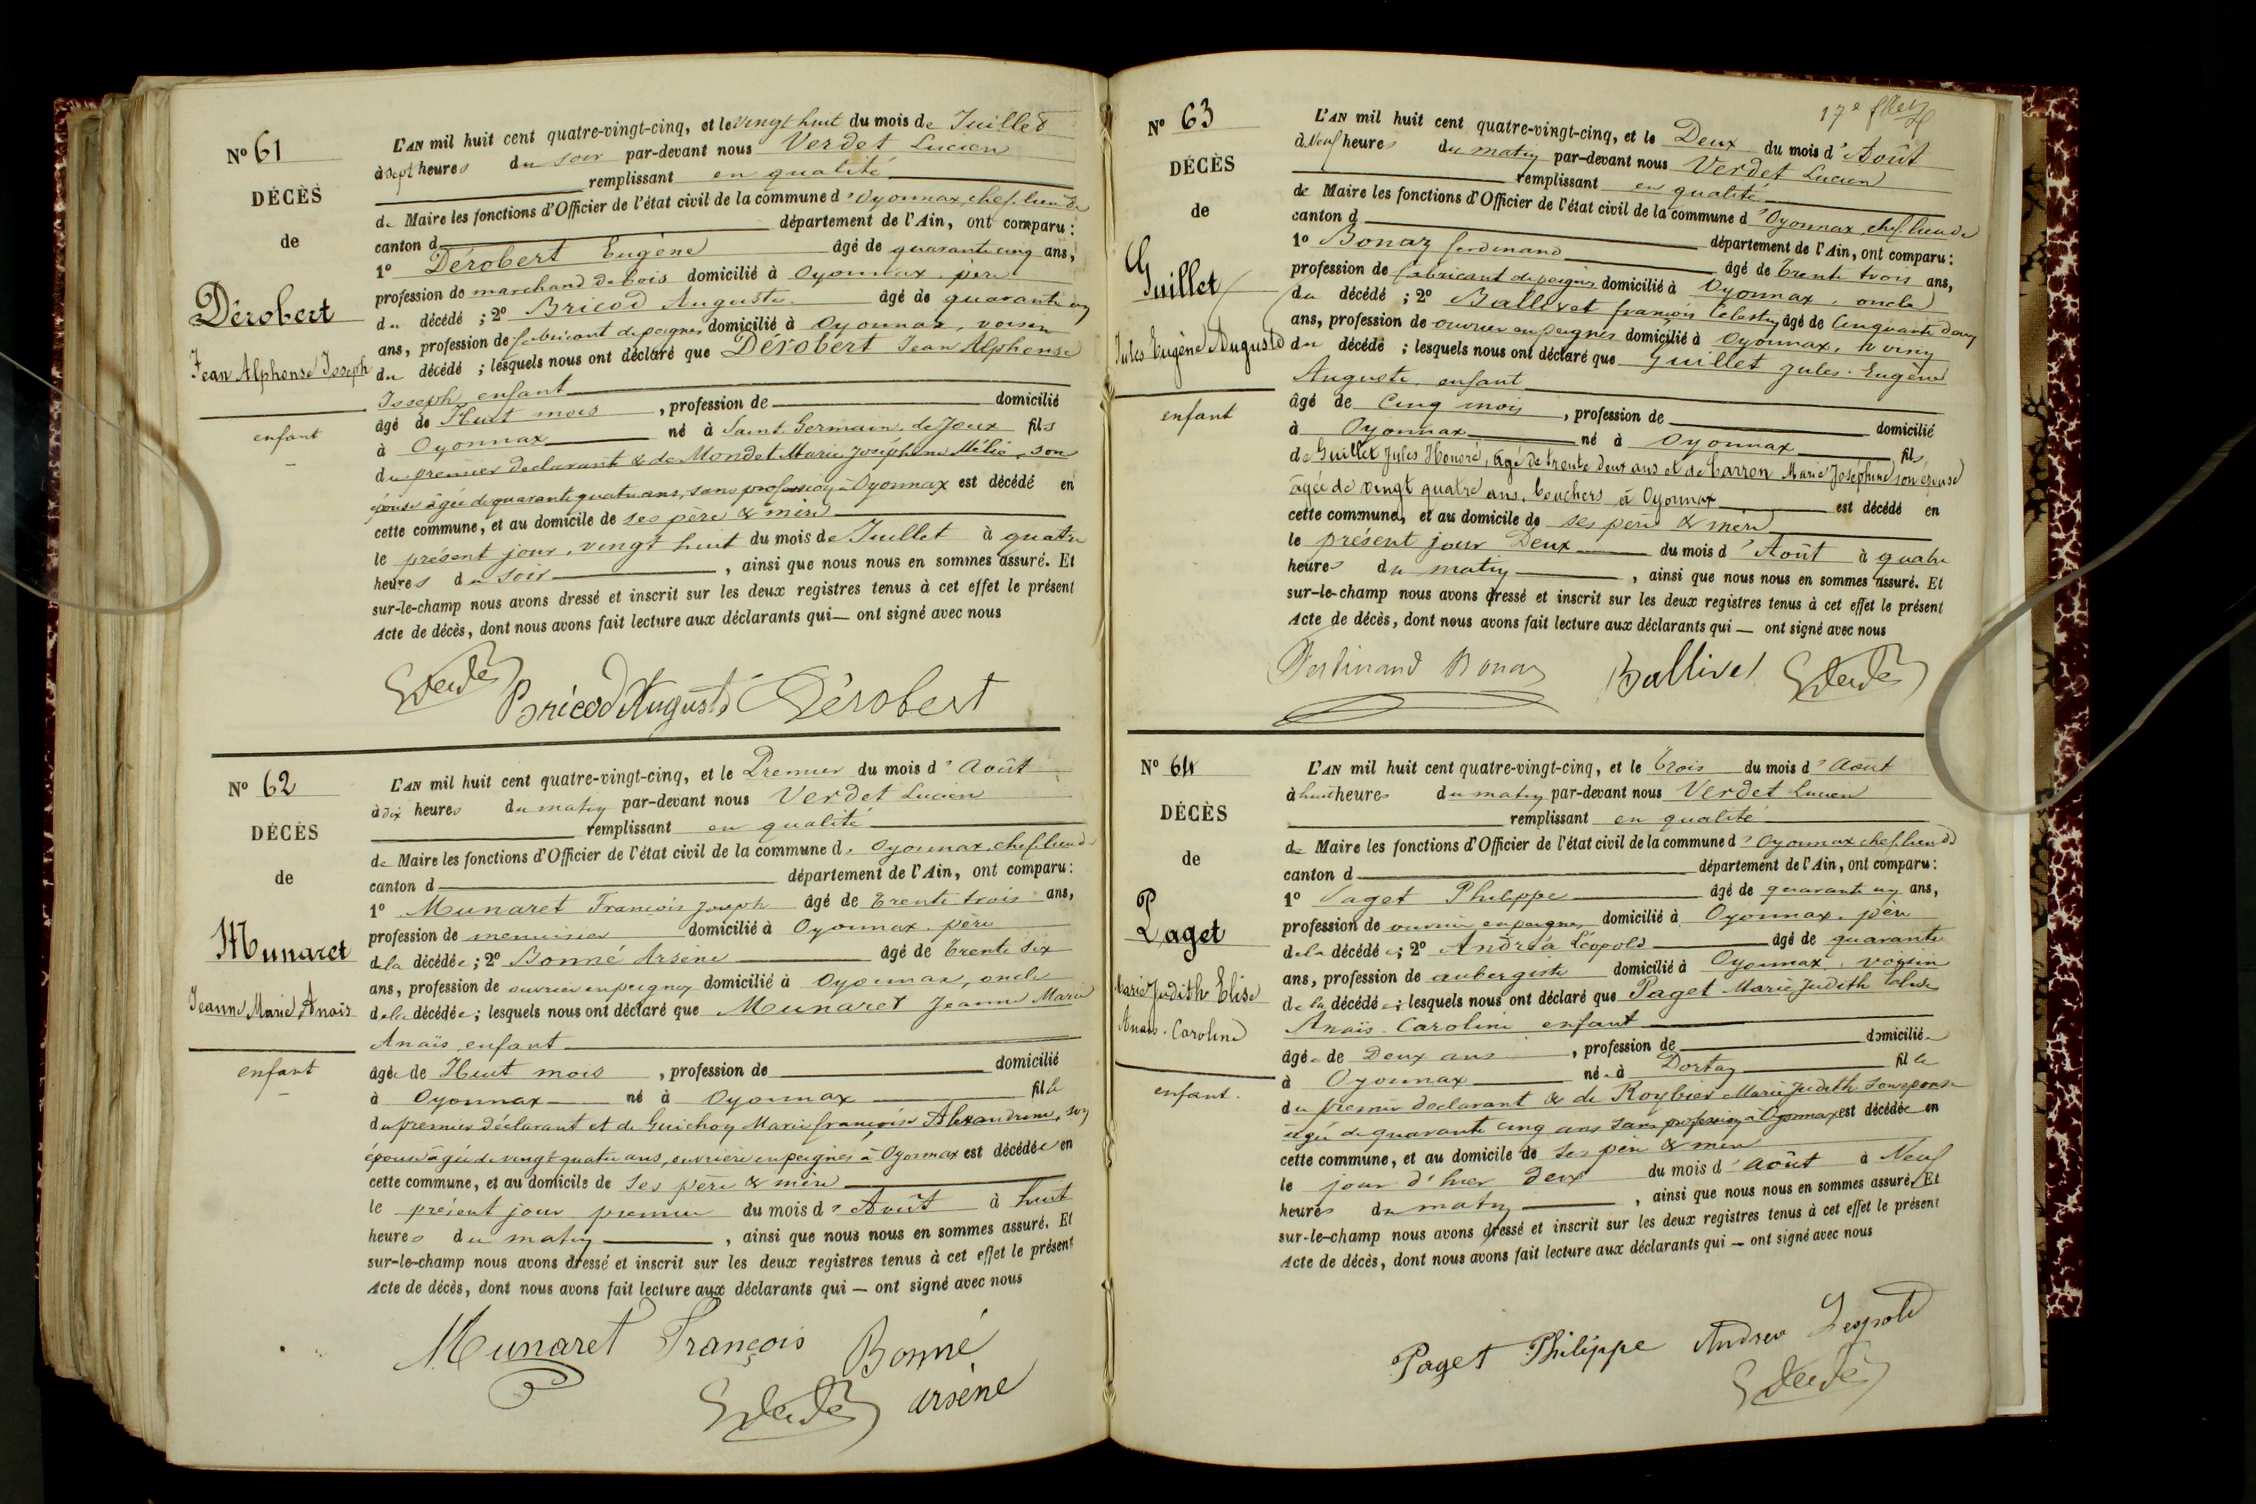 N° 61
DÉCÈS
de
Dérobert
Jean Alphonse Joseph
enfant
L'AN mil huit cent quatre-vingt-cinq, et le vingt huit du mois de Juillet
à sept heures du soir par-devant nous Verdet Lucien
remplissant en qualité
de Maire les fonctions d'Officier de l'état civil de la commune d'Oyonnax chef lieu de
canton d département de l'Ain, ont comparu :
1° Dérobert Eugène âgé de quarante cinq ans,
profession de marchand de bois domicilié à Oyonnax père
du décédé ; 2° Bricod Auguste âgé de quarante un
ans, profession de fabricant de peignes domicilié à Oyonnax, voisin
du décédé ; lesquels nous ont déclaré que Dérobert Jean Alphonse
Joseph enfant
âgé de Huit mois , profession de domicilié
à Oyonnax né à Saint Germain de Joux fils
du premier déclarant & de Mondet Marie Joséphine Mélie, son
épouse âgée de quarante quatre ans, sans profession à Oyonnax est décédé en
cette commune, et au domicile de ses père & mère
le présent jour, vingt huit du mois de Juillet à quatre
heures du soir , ainsi que nous nous en sommes assuré. Et
sur-le-champ nous avons dressé et inscrit sur les deux registres tenus à cet effet le présent
Acte de décès, dont nous avons fait lecture aux déclarants qui — ont signé avec nous
Verdet Bricod Auguste Dérobert
N° 62
DÉCÈS
de
Munaret
Jeanne Marie Anaïs
enfant
L'AN mil huit cent quatre-vingt-cinq, et le Premier du mois d'Août
à dix heures du matin par-devant nous Verdet Lucien
remplissant en qualité
de Maire les fonctions d'Officier de l'état civil de la commune d. Oyonnax chef lieu de
canton d département de l'Ain, ont comparu :
1° Munaret François Joseph âgé de trente trois ans,
profession de menuisier domicilié à Oyonnax père
de la décédée ; 2° Bonné Arsène âgé de trente six
ans, profession de ouvrier en peignes domicilié à Oyonnax, oncle
de la décédée ; lesquels nous ont déclaré que Munaret Jeanne Marie
Anaïs enfant
âgée de Huit mois , profession de domicilié
à Oyonnax né à Oyonnax fille
du premier déclarant et de Guichon Marie françoise Alexandrine, son
épouse âgée de vingt quatre ans, ouvrière en peignes à Oyonnax est décédée en
cette commune, et au domicile de ses père & mère
le présent jour premier du mois d'Août à huit
heures du matin , ainsi que nous nous en sommes assuré. Et
sur-le-champ nous avons dressé et inscrit sur les deux registres tenus à cet effet le présent
Acte de décès, dont nous avons fait lecture aux déclarants qui — ont signé avec nous
Munaret François Bonné
Verdet arsène
17e
N° 63
DÉCÈS
de
Guillet
Jules Eugène Auguste
enfant
L'AN mil huit cent quatre-vingt-cinq, et le Deux du mois d'Août
à Neuf heures du matin par-devant nous Verdet Lucien
remplissant en qualité
de Maire les fonctions d'Officier de l'état civil de la commune d'Oyonnax chef lieu de
canton d département de l'Ain, ont comparu :
1° Bonaz ferdinand âgé de trente trois ans,
profession de fabricant de peignes domicilié à Oyonnax, oncle
du décédé ; 2° Ballivet françois Célestin âgé de Cinquante deux
ans, profession de ouvrier en peignes domicilié à Oyonnax, voisin
du décédé ; lesquels nous ont déclaré que Guillet Jules Eugène
Auguste enfant
âgé de Cinq mois , profession de domicilié
à Oyonnax né à Oyonnax fils
de Guillet Jules Honoré, âgé de trente deux ans et de Carron Marie Joséphine son épouse
âgée de vingt quatre ans, bouchers à Oyonnax est décédé en
cette commune, et au domicile de ses père & mère
le présent jour Deux du mois d'Août à quatre
heures du matin , ainsi que nous nous en sommes assuré. Et
sur-le-champ nous avons dressé et inscrit sur les deux registres tenus à cet effet le présent
Acte de décès, dont nous avons fait lecture aux déclarants qui — ont signé avec nous
Ferdinand Bonaz Ballivet Verdet
N° 64
DÉCÈS
de
Paget
Marie Judith Elise
Anaïs. Caroline
enfant.
L'AN mil huit cent quatre-vingt-cinq, et le Trois du mois d'Août
à huit heures du matin par-devant nous Verdet Lucien
remplissant en qualité
de Maire les fonctions d'Officier de l'état civil de la commune d'Oyonnax chef lieu de
canton d département de l'Ain, ont comparu :
1° Paget Philippe âgé de quarante un ans,
profession de ouvrier en peignes domicilié à Oyonnax, père
de la décédée ; 2° Andréa Léopold âgé de quarante
ans, profession de aubergiste domicilié à Oyonnax, voisin
de la décédée ; lesquels nous ont déclaré que Paget Marie Judith Elise
Anaïs. Caroline enfant
âgée de Deux ans , profession de domiciliée
à Oyonnax née à Dortan fille
du premier déclarant & de Roybier Marie Judith son épouse
âgée de quarante cinq ans sans profession à Oyonnax est décédée en
cette commune, et au domicile de ses père & mère
le jour d'hier deux du mois d'août à Neuf
heures du matin , ainsi que nous nous en sommes assuré. Et
sur-le-champ nous avons dressé et inscrit sur les deux registres tenus à cet effet le présent
Acte de décès, dont nous avons fait lecture aux déclarants qui — ont signé avec nous
Paget Philippe Andrea Léopold
Verdet